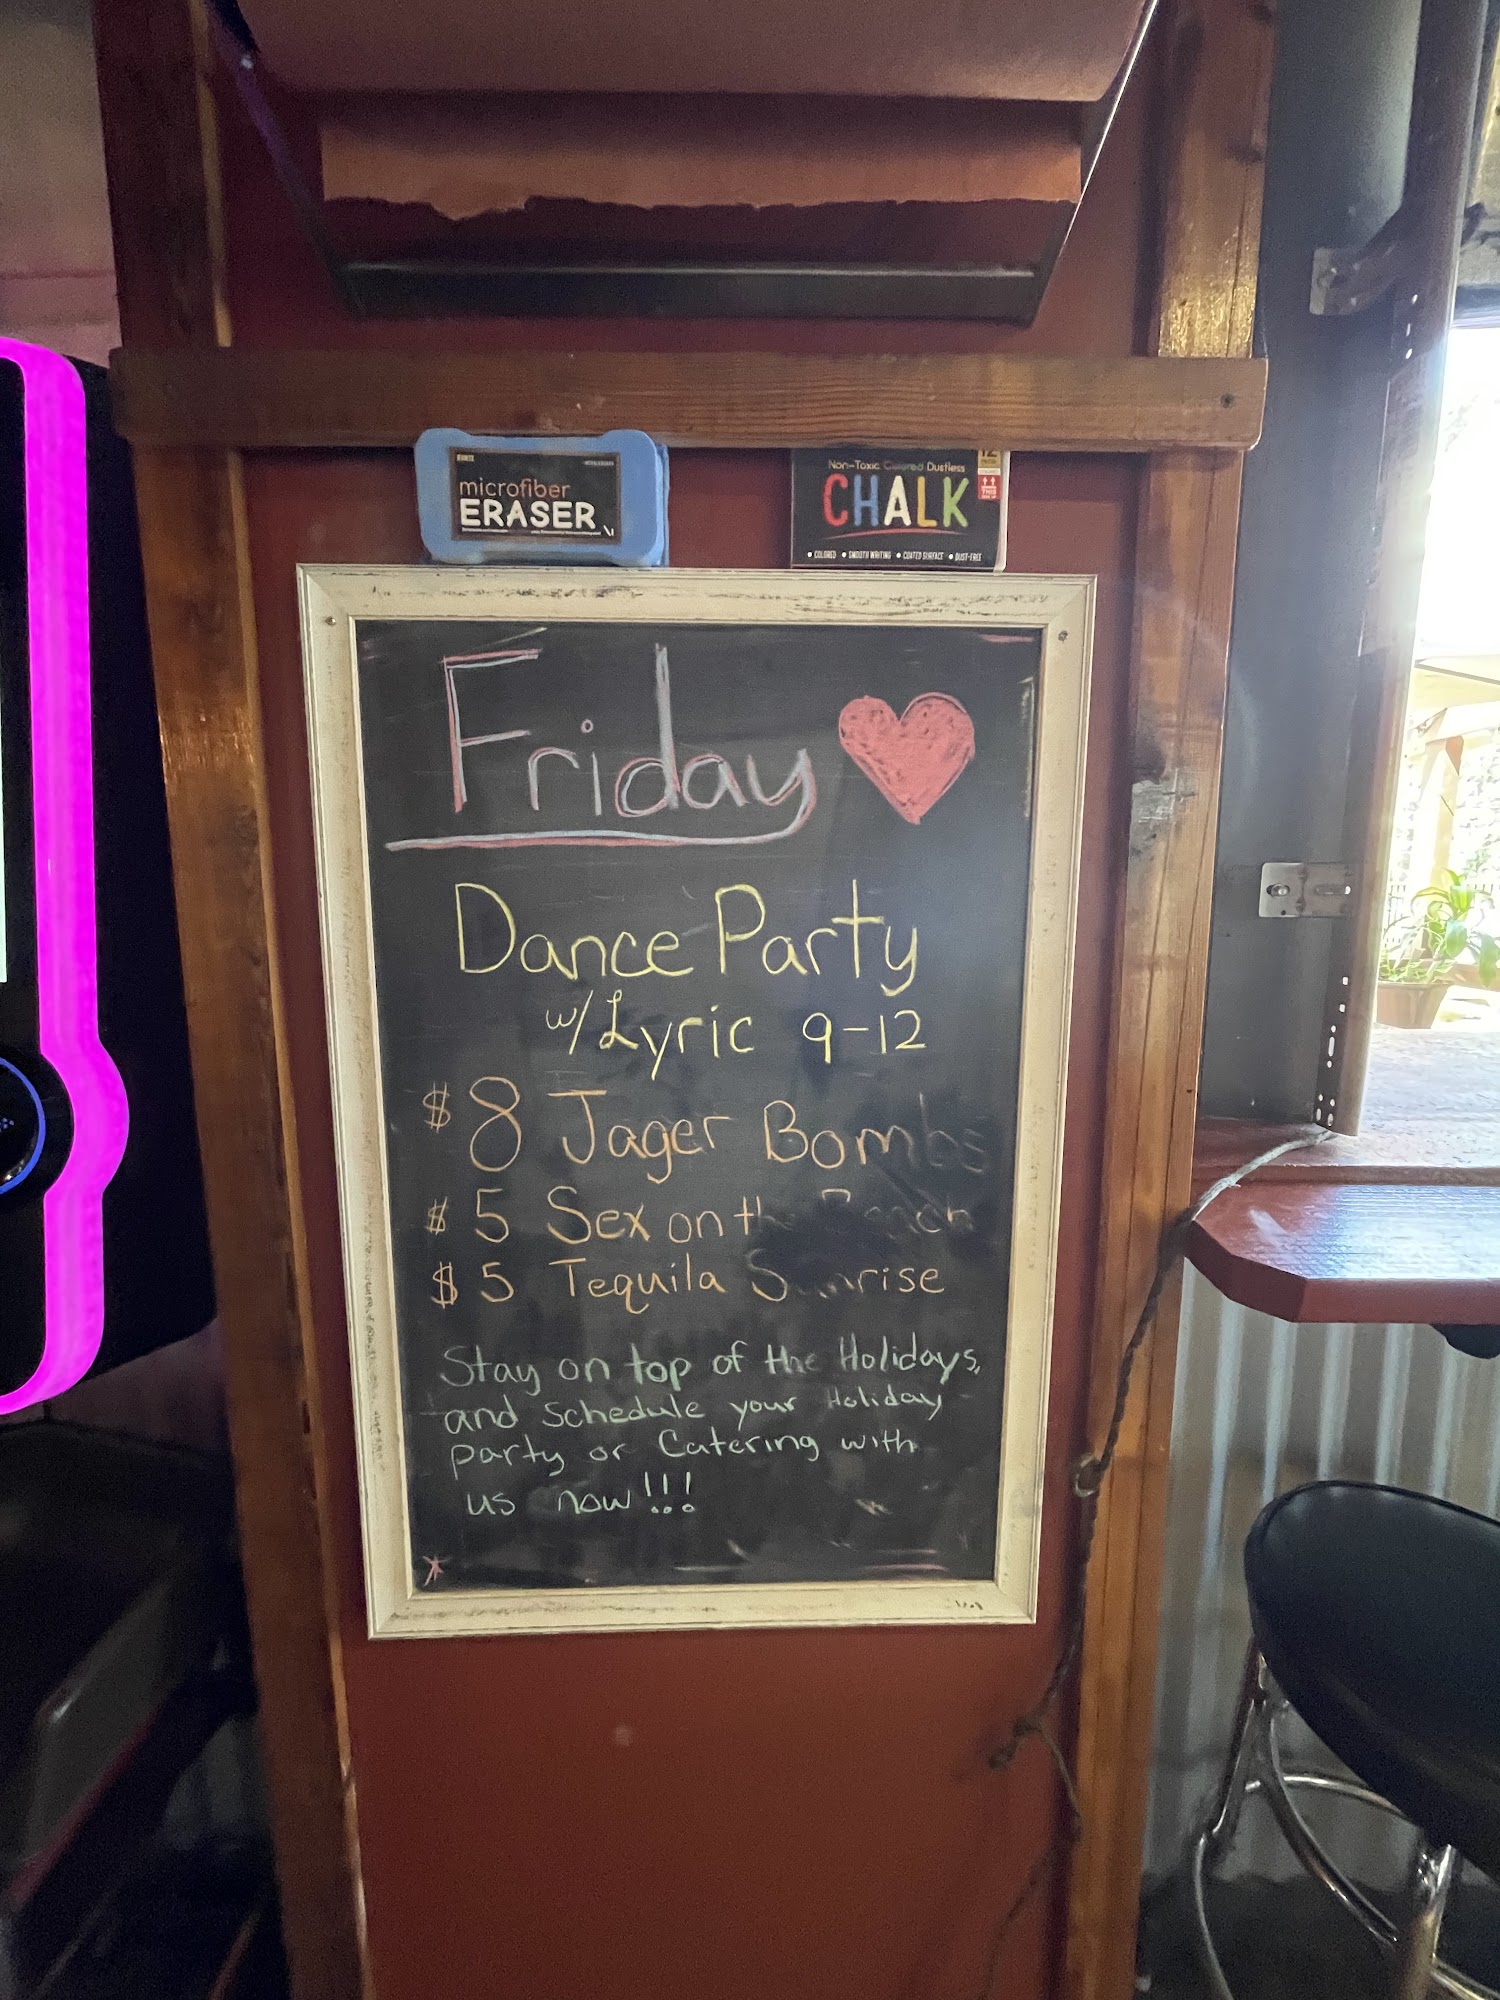 microfiber
ERASER
Non-Toxic Colored Dustless
CHALK
• COLORED • SMOOTH WRITING • COATED SURFACE • DUST-FREE
12
Friday
Dance Party
w/ Lyric 9-12
$8 Jager Bombs
$5 Sex on the Beach
$5 Tequila Sunrise
Stay on top of the Holidays,
and schedule your Holiday
party or Catering with
us now!!!